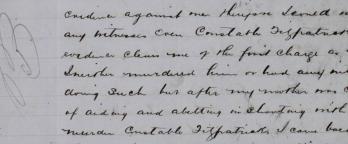 evidence against me therefore I could
any witnesses Even Constable Fitzpatricks
evidence clears me of the first charge as
I neither murdered him or had any
doing such but after my mother was
of aiding and abetting in shooting with
murder Constable Fitzpatrick I came back